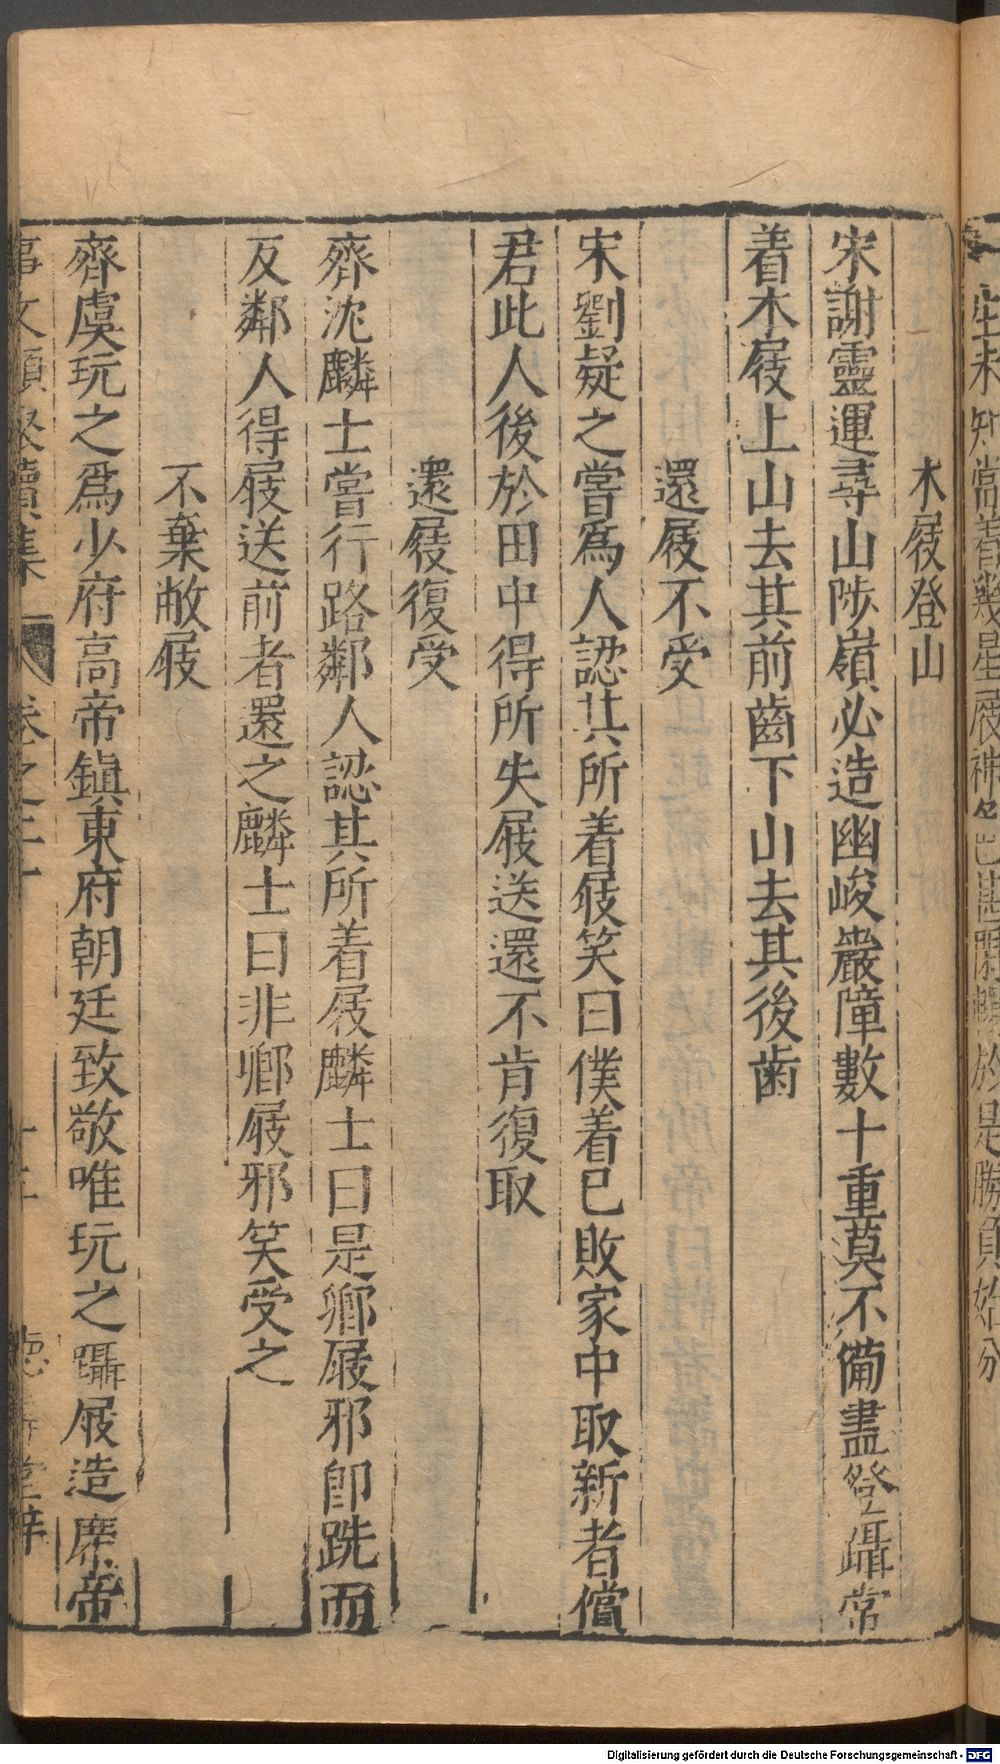 坐未知當着幾星屐神色閑暢於是勝負始分
木屐登山
宋謝靈運尋山陟嶺必造幽峻巖障數十重莫不備盡登躡常
着木屐上山去其前齒下山去其後齒
還屐不受
宋劉疑之嘗爲人認其所着屐笑曰僕着已敗家中取新者償
君此人後於田中得所失屐送還不肯復取
還屐復受
齊沈麟士嘗行路鄰人認其所着屐麟士曰是卿屐邪卽跣而
反鄰人得屐送前者還之麟士曰非卿屐邪笑受之
不棄敝屐
齊虞玩之爲少府高帝鎮東府朝廷致敬唯玩之躡屐造席帝
事文類聚續集 卷之二十
Digitalisierung gefördert durch die Deutsche Forschungsgemeinschaft - DFG